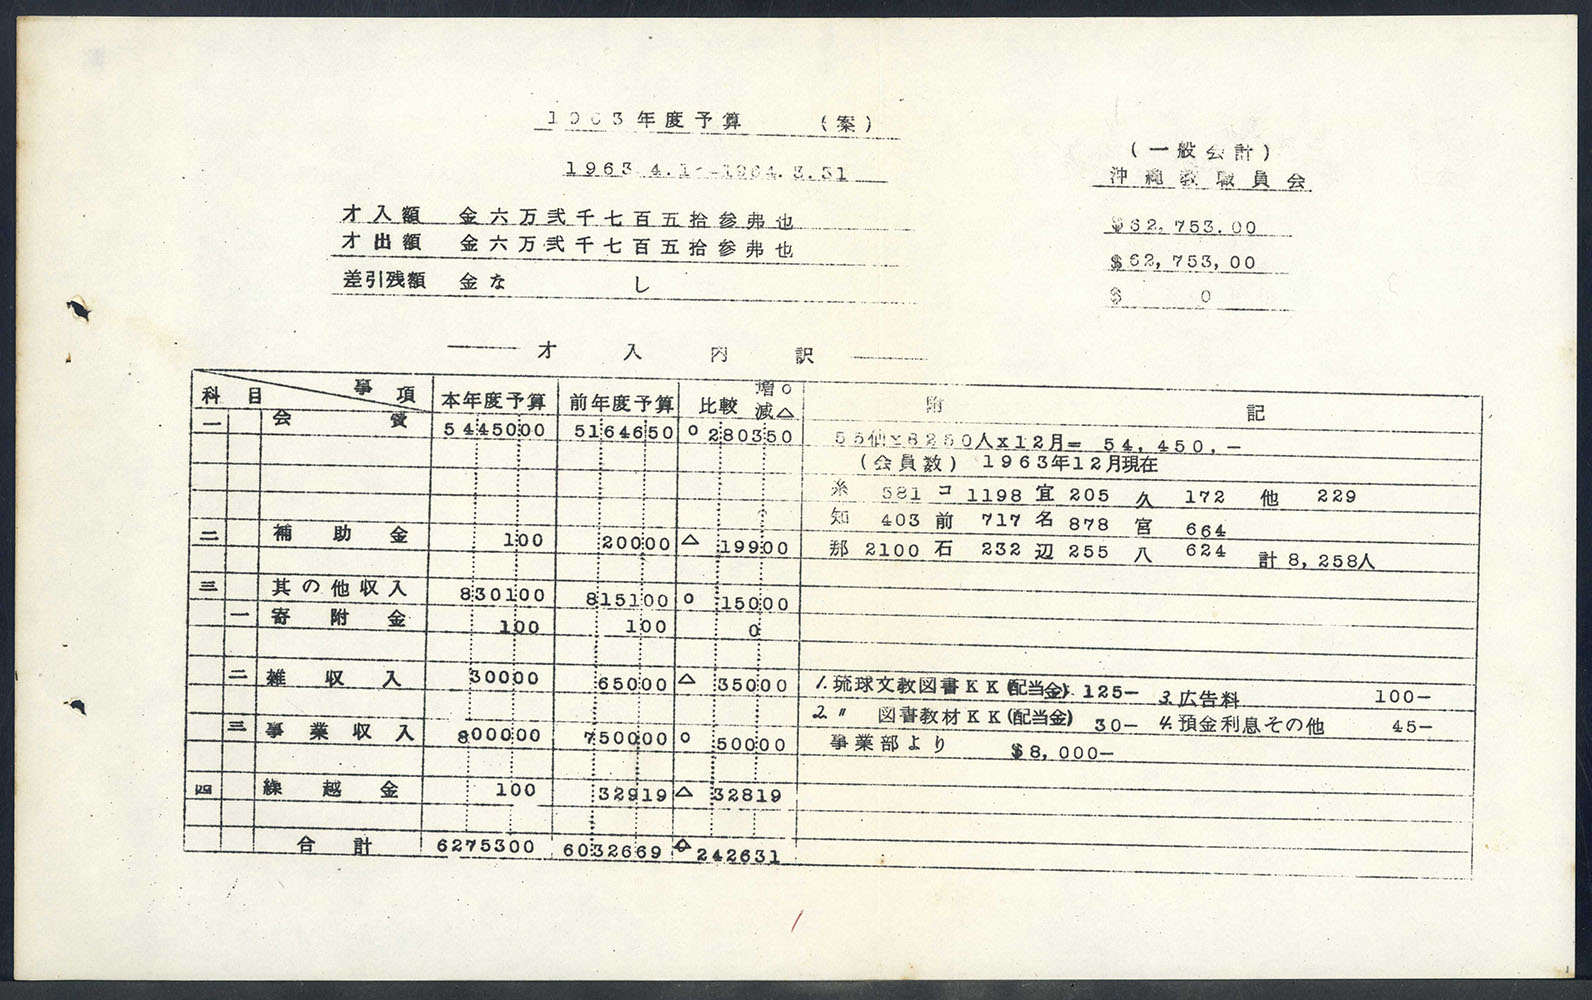 1963年度予算 (案)
1963.4.1～1964.3.31
(一般会計)
沖縄教職員会
才入額 金六万弐千七百五拾参弗也 $62,753.00
才出額 金六万弐千七百五拾参弗也 $62,753,00
差引残額 金なし $ 0
才入内訳
科目 事項 本年度予算 前年度予算 比較 増○ 減△ 附記
一 会費 5445000 5164650 ○ 280350 55仙×8250人x12月= 54,450,-
(会員数) 1963年12月現在
糸 581 コ 1198 宜 205 久 172 他 229
知 403 前 717 名 878 宮 664
二 補助金 100 20000 △ 19900 那 2100 石 232 辺 255 八 624 計 8,258人
三 其の他収入 830100 815100 ○ 15000
一 寄附金 100 100 0
二 雑収入 30000 65000 △ 35000 1.琉球文教図書KK(配当金). 125- 3.広告料 100-
2.〃 図書教材KK(配当金) 30- 4.預金利息その他 45-
三 事業収入 800000 750000 ○ 50000 事業部より $8,000-
四 繰越金 100 32919 △ 32819
合計 6275300 6032669 242631